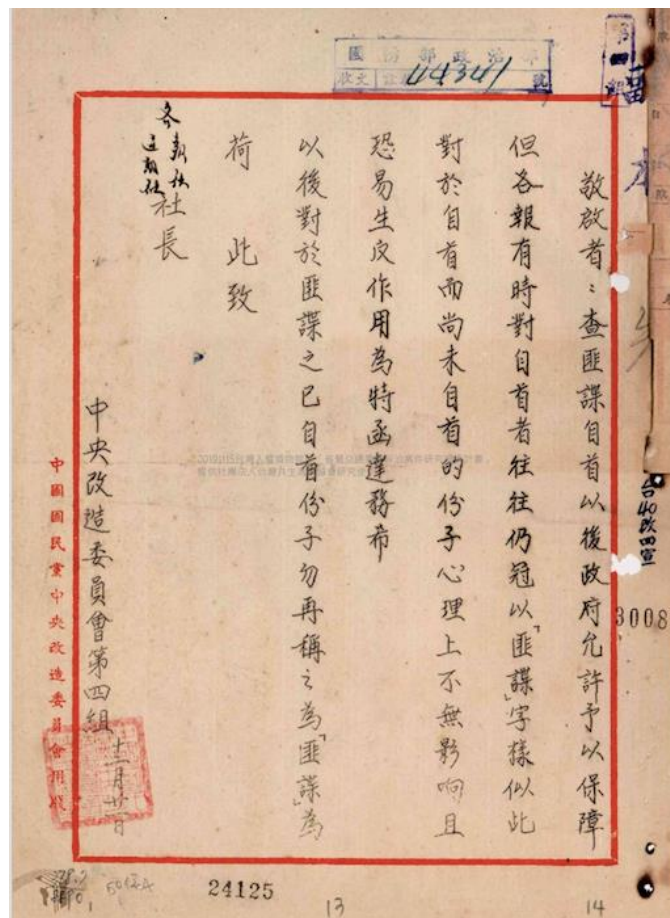 國防部政治部
收文 號
44341
第四組
敬啟者：查匪諜自首以後政府允許予以保障
但各報有時對自首者往往仍冠以「匪諜」字樣似此
對於自首而尚未自首的份子心理上不無影响且
恐易生反作用為特函達務希
以後對於匪諜之已自首份子勿再稱之為「匪諜」為
荷 此致
各報社
通訊社
社長
中央改造委員會第四組 十二月廿一日
中國國民黨中央改造委員會用牋
台40改四宣
3008
24125
13
14